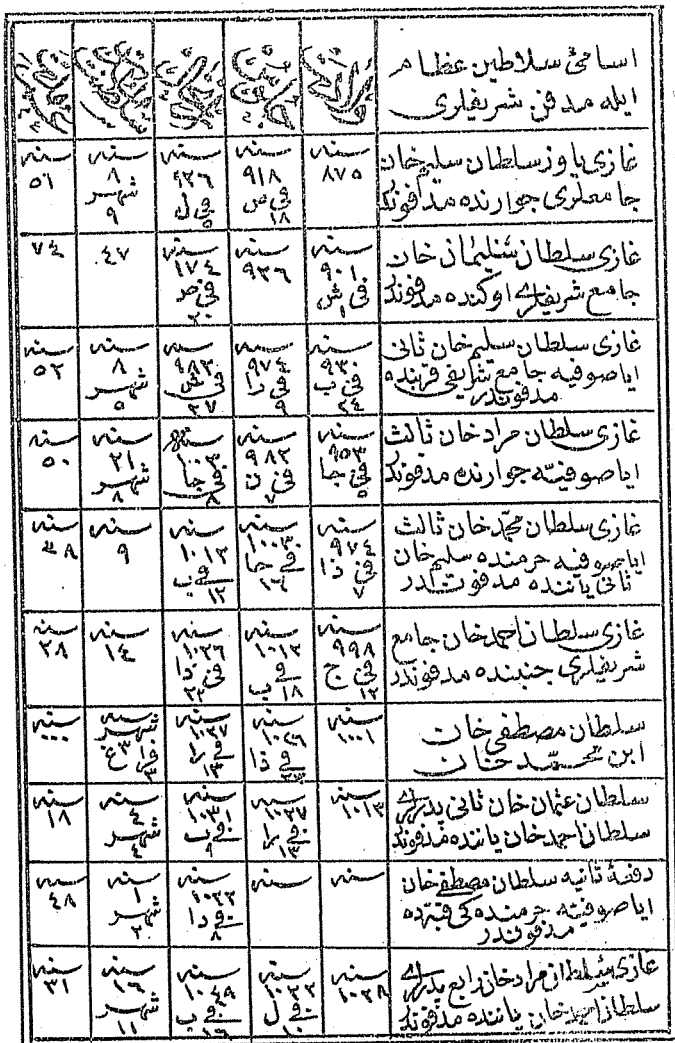 اسامئ سلاطين عظام
ايله مدفن شريفلرى
ولادت
جلوس
سلطنت
غازى ياوز سلطان سليم خان
جامعلرى جوارنده مدفوندر
سنه ٨٧٥
سنه ٩١٨ فى ص ١٨
سنه ٩٢٦ فى ل ٩
سنه ٨ شهر ٩
سنه ٥١
غازى سلطان سليمان خان
جامع شريفلرى اوكنده مدفوندر
سنه ٩٠١ فى ش ١
سنه ٩٢٦
سنه ١٧٤ فى صر ٢٠
٤٧
٧٤
غازى سلطان سليم خان ثانى
اياصوفيه جامع شريفى قربنده
مدفوندر
سنه ٩٣٠ فى ب ٢٤
سنه ٩٧٤ فى را ٩
سنه ٩٨٢ فى ش ٢٧
سنه ٨ شهر ٥
سنه ٥٢
غازى سلطان مراد خان ثالث
اياصوفيه جوارنده مدفوندر
سنه ٩٥٣ فى جا ٥
سنه ٩٨٢ فى ن ٧
سنه ١٠٠٣ فى جا ٨
سنه ٢١ شهر ٨
سنه ٥٠
غازى سلطان محمد خان ثالث
اياصوفيه حرمنده سليم خان
ثانى ياننده مدفوندر
سنه ٩٧٤ فى ذا ٧
سنه ١٠٠٣ فى جا ١٦
سنه ١٠١٢ فى ب ١٢
سنه ٩
سنه ٣٨
غازى سلطان احمد خان جامع
شريفلرى جنبنده مدفوندر
سنه ٩٩٨ فى ج ١٢
سنه ١٠١٢ فى ب ١٨
سنه ١٠٢٦ فى ذا ٢٣
سنه ١٤
سنه ٢٨
سلطان مصطفى خان
ابن محمد خان
سنه ١٠٠١
سنه ١٠٢٦ فى ذا ٢٣
سنه ١٠٢٧ فى را ١٣
شهر ٣
سنه ٠٠٠
سلطان عثمان خان ثانى پدرلرى
سلطان احمد خان ياننده مدفوندر
سنه ١٠١٣
سنه ١٠٢٧ فى را ١٣
سنه ١٠٣١ فى ب ٩
سنه ٤ شهر ٤
سنه ١٨
دفعهٔ ثانيه سلطان مصطفى خان
اياصوفيه حرمنده كى قبه ده
مدفوندر
سنه
سنه
سنه ١٠٣٢ فى ذا ٨
سنه ١ شهر ٢
سنه ٤٨
غازى سلطان مراد خان رابع پدرلرى
سلطان احمد خان ياننده مدفوندر
سنه ١٠٢٨
سنه ١٠٣٢ فى ل ١٠
سنه ١٠٤٩ فى ب ١٦
سنه ١٦ شهر ١١
سنه ٣١